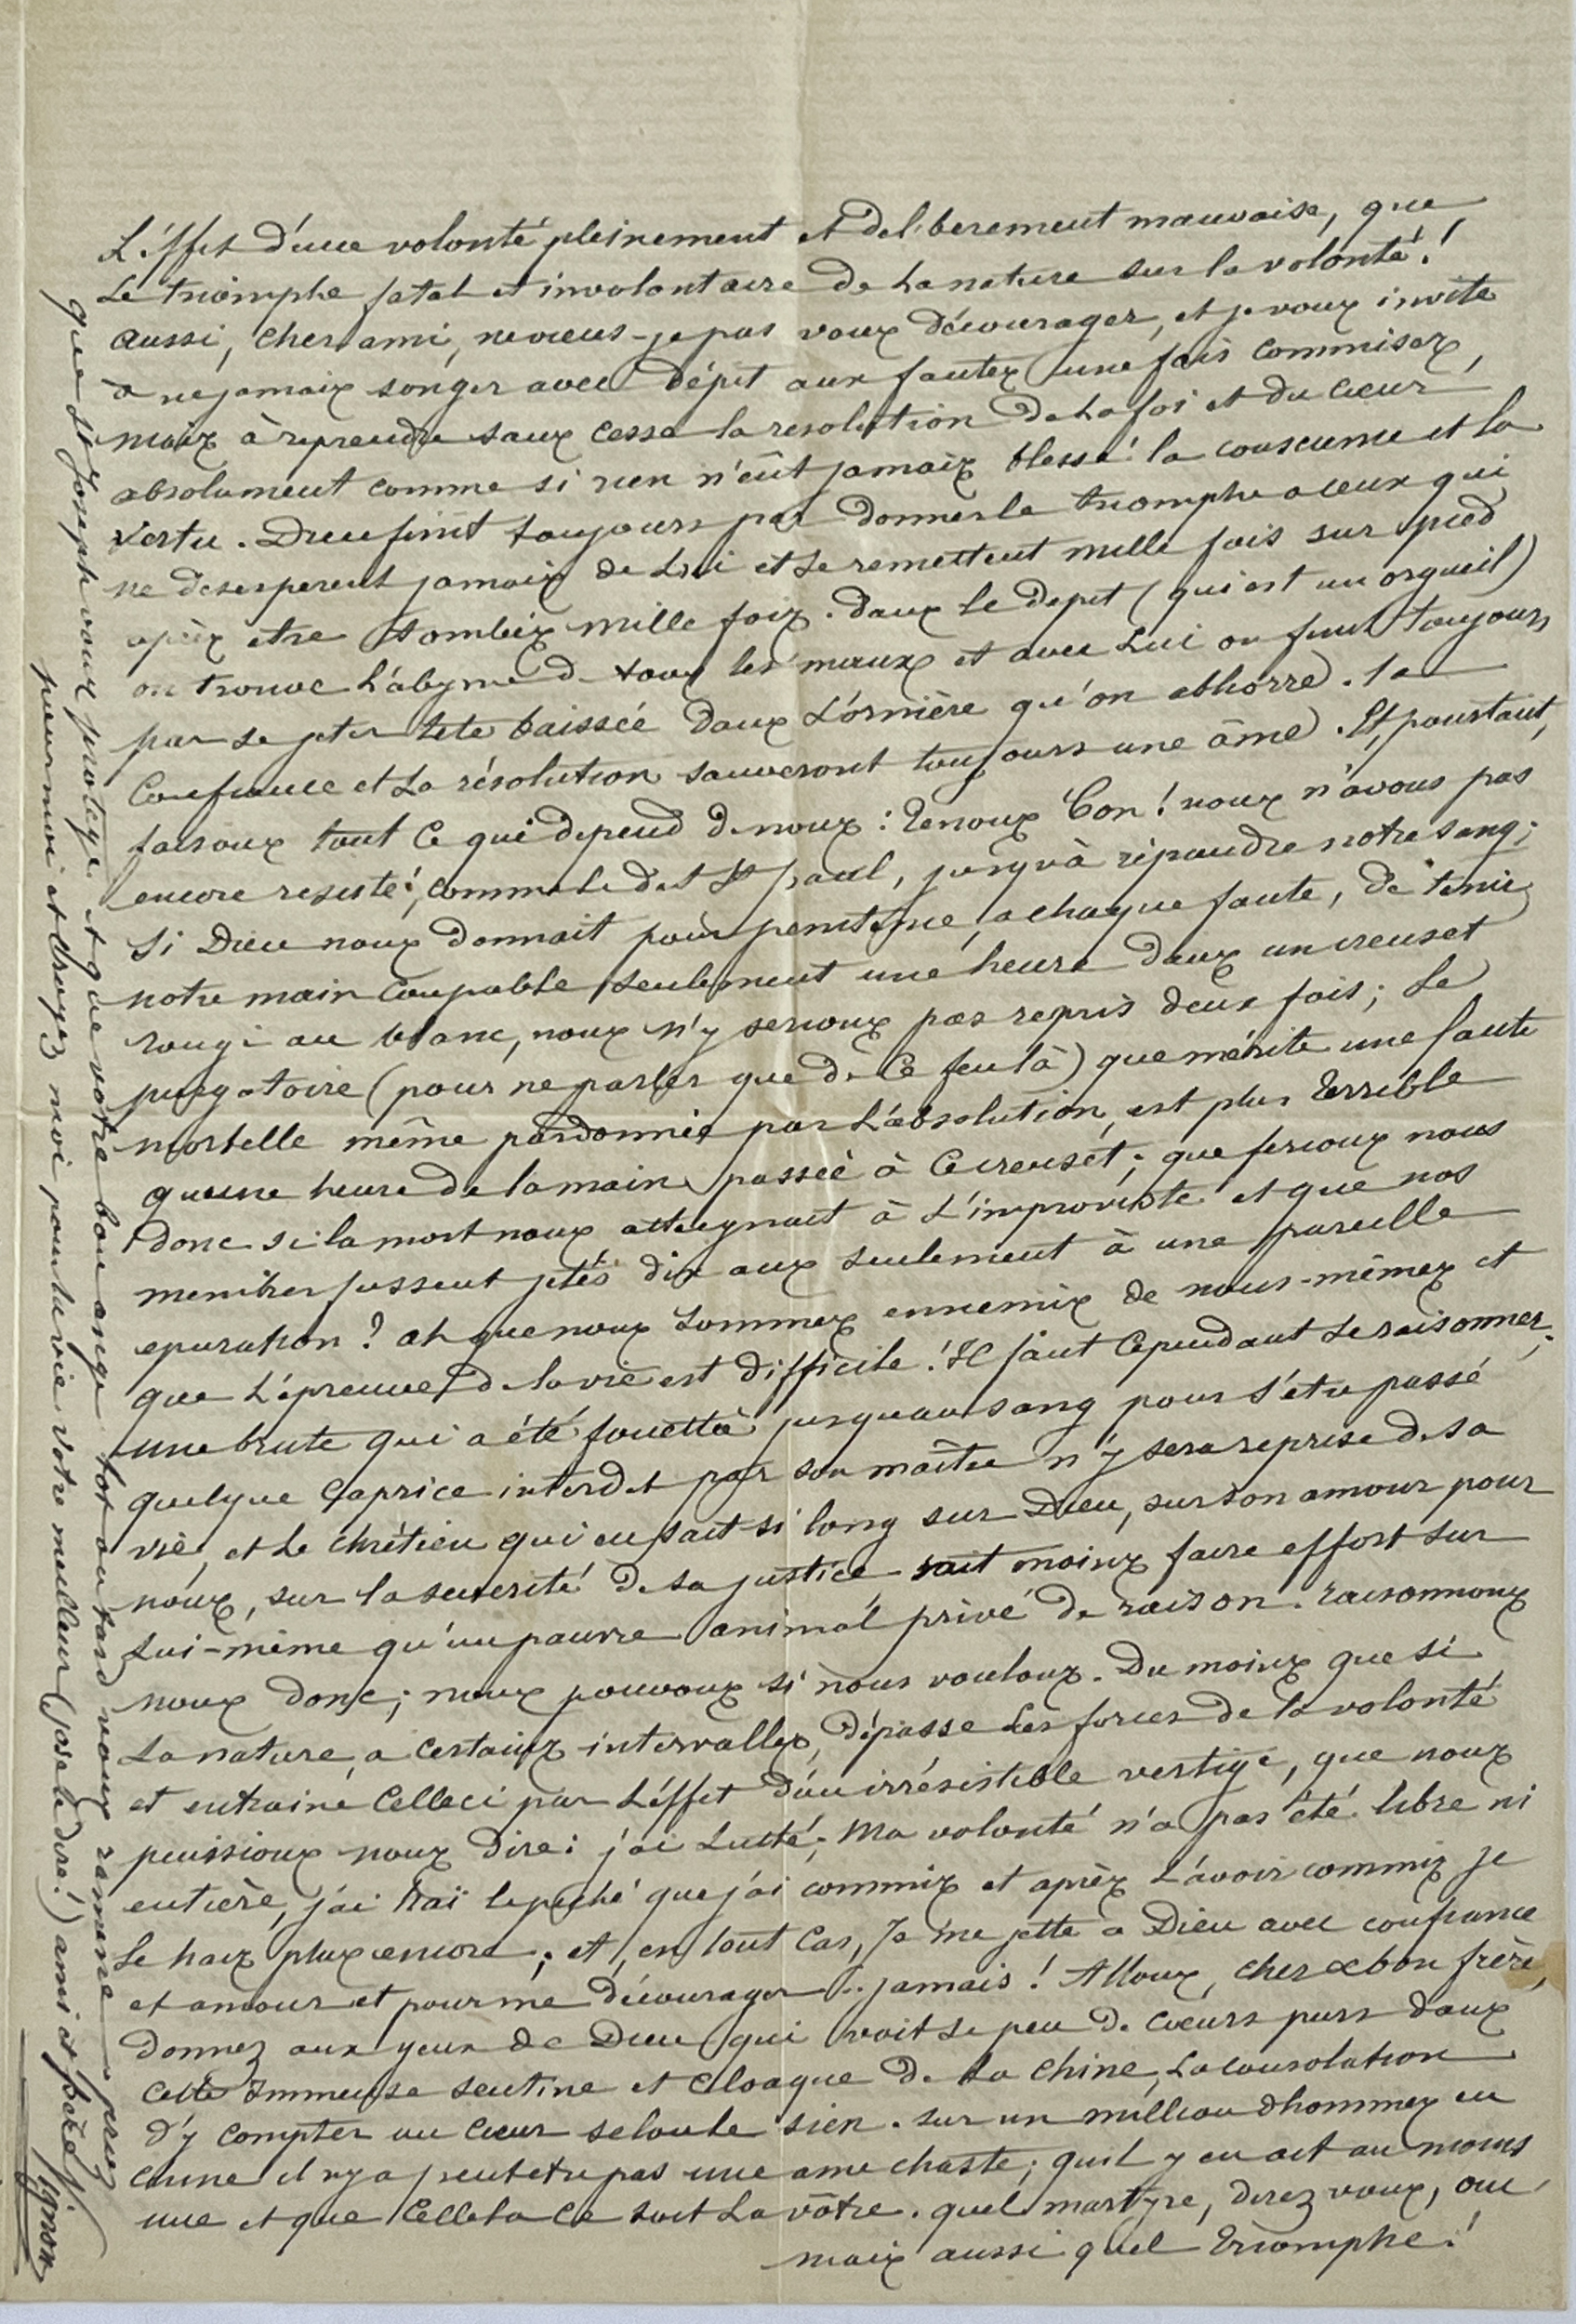 L'éffet d'une volonté pleinement et deliberement mauvaise, que
Le triomphe fatal et involontaire de La nature sur la volonté!
aussi, cher ami, ne veus-je pas vous décourager, et je vous invite
a ne jamais songer avec dépit aux fautes une fois commises,
mais à reprendre sans cesse la resolution de La foi et du cœur
absolument comme si rien n'eût jamais blessé la conscience et la
vertu. Dieu finit toujours par donner le triomphe a ceux qui
ne desesperent jamais de Lui et se remettent mille fois sur pied
après etre tombés mille fois. dans le depit (qui est un orgueil)
on trouve L'abyme de tous les maux et avec Lui on finit toujours
par se jeter tete baissée dans L'ornière qu'on abhorre. la
Confiance et La résolution sauveront toujours une âme. Et, pourtant,
faisons tout Ce qui depend de nous: tenons bon! nous n'avons pas
encore resisté, comme le dit St paul, jusqu'à répandre notre sang;
si Dieu nous donnait pour penitence, a chaque faute, de tenir
notre main Coupable seulement une heure dans un creuset
rougi au blanc, nous n'y serions pas repris deux fois; Le
purgatoire (pour ne parler que de Ce feu là) que mérite une faute
mortelle même pardonnée par L'absolution, est plus terrible
qu'une heure de la main passée à Ce creuset; que ferions nous
donc si la mort nous atteignait à L'improviste et que nos
membres fussent jetés dix ans seulement à une pareille
epuration? ah que nous sommes ennemis de nous-mêmes et
que L'épreuve de la vie est difficile! Il faut Cependant se raisonner;
une brute qui a été fouettée jusqu'au sang pour s'etre passé
quelque Caprice interdit par son maître n'y sera reprise de sa
vie, et Le chrétien qui en sait si long sur Dieu, sur son amour pour
nous, sur la severité de sa justice sait moins faire effort sur
Lui-même qu'un pauvre animal privé de raison. raisonnons
nous donc; nous pouvons si nous voulons. Du moins que si
La nature, a certains intervalles, dépasse Les forces de la volonté
et entraine Celle ci par L'éffet d'un irrésistible vertige, que nous
puissions nous dire: j'ai Lutté; Ma volonté n'a pas été libre ni
entière, j'ai haï le peché que j'ai commis et après L'avoir commis je
Le hais plus encore; et, en tout Cas, Je me jette a Dieu avec confiance
et amour et pour me décourager .. jamais! Allons, cher & bon frère,
donnez aux yeux de Dieu qui voit si peu de cœurs purs dans
Cette immense sentine et Cloaque de La Chine, La consolation
d'y compter un Cœur selon le sien. sur un million d'hommes en
Chine il n'y a peut etre pas une ame chaste; qu'il y en ait au moins
une et que Celle la Ce soit La vôtre. quel martyre, direz vous, oui
mais aussi quel triomphe!
que St Joseph vous protège et que votre bon ange tot ou tard vous ramène. priez
pour moi et croyez moi pour la vie votre meilleur (j'ose le dire!) ami et frère